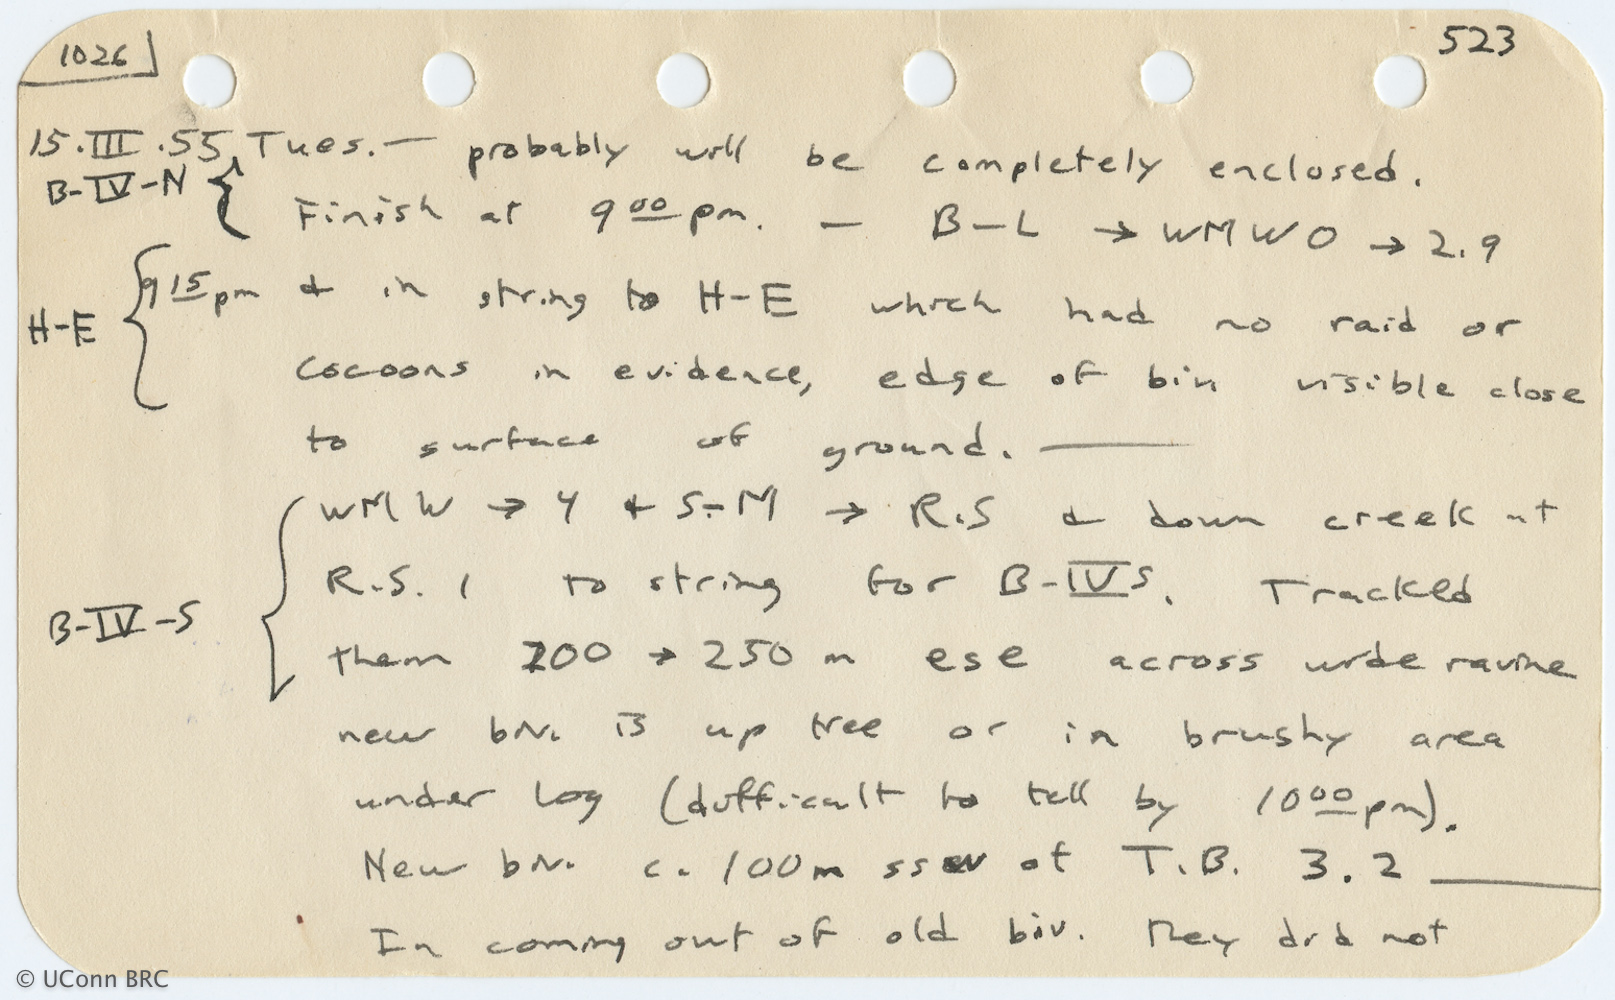 1026
523
15.III.55 Tues. — probably will be completely enclosed.
B-IV-N
Finish at 9 00 pm. — B-L → WMWO → 2.9
9 15 pm & in string to H-E which had no raid or
H-E
cocoons in evidence, edge of biv visible close
to surface of ground. —
WMW → 4 & S-M → R.S & down creek at
R.S. 1 to string for B-IVS. Tracked
B-IV-S
them 200 → 250 m ese across wide ravine
new biv. is up tree or in brushy area
under log (difficult to tell by 10 00 pm).
New biv. c. 100m ssw of T.B. 3.2 —
In coming out of old biv. they did not
© UConn BRC